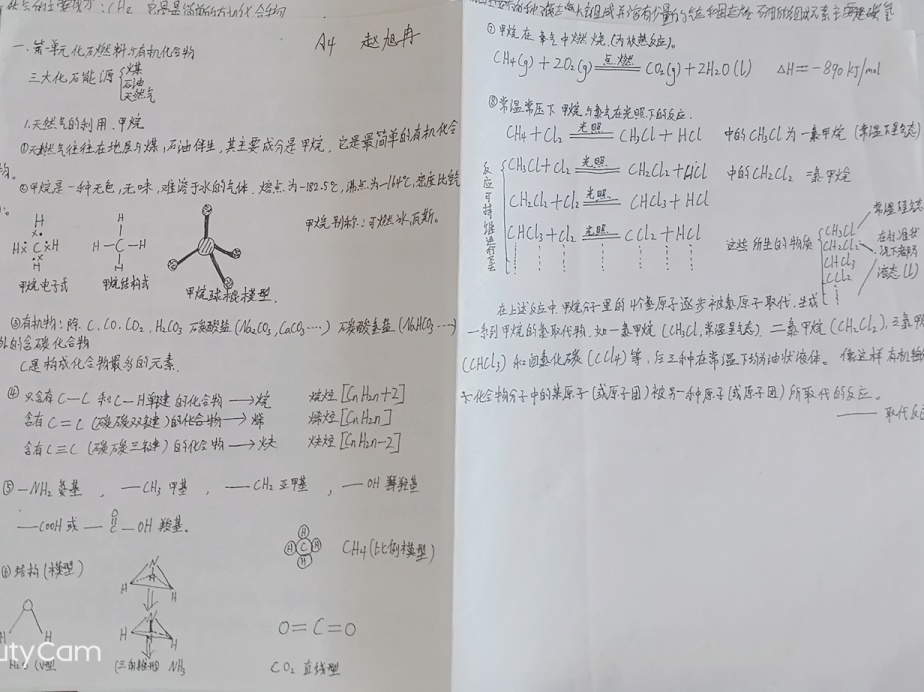 A4 赵旭冉
一.第一单元 化石燃料与有机化合物
三大化石能源 { 煤 石油 天然气
1.天然气的利用.甲烷
①天然气往往在地层与煤,石油伴生,其主要成分是甲烷,它是最简单的有机化合
物。
②甲烷是一种无色,无味,难溶于水的气体.熔点为-182.5℃,沸点为-164℃,密度比
甲烷别称:可燃冰,瓦斯。
H
H C H
H
甲烷电子式
H
H—C—H
H
甲烷结构式
甲烷球棍模型.
③有机物:除.C.CO.CO2.H2CO3 碳酸盐(Na2CO3,CaCO3……) 碳酸氢盐(NaHCO3……)
外的含碳化合物
C是构成化合物最多的元素.
④只含有C—C和C—H单键的化合物→烷 烷烃[CnH2n+2]
含有C=C(碳碳双键)的化合物→烯 烯烃[CnH2n]
含有C≡C(碳碳三键)的化合物→炔 炔烃[CnH2n-2]
⑤—NH2氨基, —CH3甲基, —CH2亚甲基, —OH 羟基
—COOH或—C—OH羧基。
O
H
H C H
H
CH4(比例模型)
⑥结构(模型)
O
H H
H2O (V型
N
H H
H
N
H H
H
(三角锥形) NH3
O=C=O
CO2 直线型
utyCam
①甲烷在氧气中燃烧.(为放热反应)。
CH4(g)+2O2(g) 点燃 CO2(g)+2H2O(l) ΔH=-890kJ/mol
②常温常压下甲烷与氯气在光照下的反应.
CH4+Cl2 光照 CH3Cl+HCl 中的CH3Cl为一氯甲烷(常温下呈气态)
反应可持续进行至
CH3Cl+Cl2 光照 CH2Cl2+HCl 中的CH2Cl2 二氯甲烷
CH2Cl2+Cl2 光照 CHCl3+HCl
CHCl3+Cl2 光照 CCl2+HCl
这些所生的物质 { CH3Cl CH2Cl2 CHCl3 CCl2
常温呈气态
在标准状
况下都为
液态(l)
在上述反应中.甲烷分子里的4个氢原子逐步被氯原子取代.生成
一系列甲烷的氯取代物,如一氯甲烷(CH3Cl,常温呈气态).二氯甲烷(CH2Cl2),三氯甲
(CHCl3)和四氯化碳(CCl4)等,后三种在常温下均为油状液体。像这样有机物
化合物分子中的某原子(或原子团)被另一种原子(或原子团)所取代的反应。
——取代反应